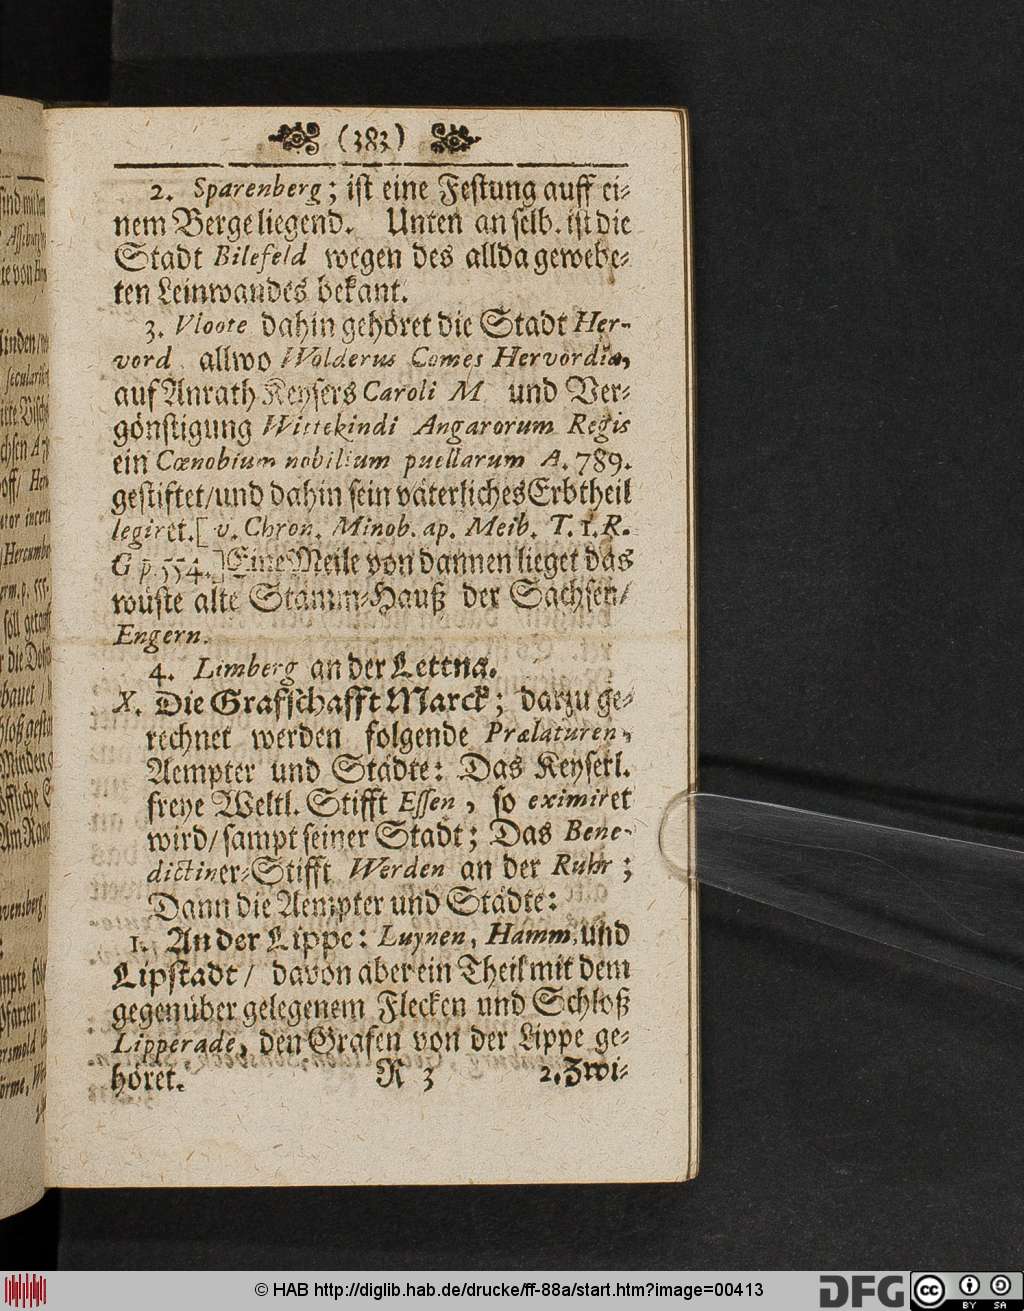 (383)
2. Sparenberg; ist eine Festung auff ei-
nem Berge liegend. Unten an selb. ist die
Stadt Bilefeld wegen des allda gewebe-
ten Leinwandes bekant.
3. Vloote dahin gehöret die Stadt Her-
vord allwo Wolderus Comes Hervordiæ,
auf Anrath Keysers Caroli M und Ver-
gönstigung Wittekindi Angarorum Regis
ein Cœnobium nobilium puellarum A. 789.
gestiftet/und dahin sein väterliches Erbtheil
legiret.[ v. Chron. Minob. ap. Meib. T. 1. R.
G p. 554.] Eine Meile von dannen lieget das
wüste alte Stamm-Hauß der Sachsen/
Engern.
4. Limberg an der Lettna.
X. Die Grafschafft Marck; darzu ge-
rechnet werden folgende Prælaturen,
Aempter und Städte: Das Keyserl.
freye Weltl. Stifft Essen, so eximiret
wird/sampt seiner Stadt; Das Bene-
dictiner-Stifft Werden an der Ruhr;
Dann die Aempter und Städte:
1. An der Lippe: Luynen, Hamm, und
Lipstadt/ davon aber ein Theil mit dem
gegenüber gelegenem Flecken und Schloß
Lipperade, den Grafen von der Lippe ge-
höret. R 3 2. Zwi-
© HAB http://diglib.hab.de/drucke/ff-88a/start.htm?image=00413
DFG cc BY SA